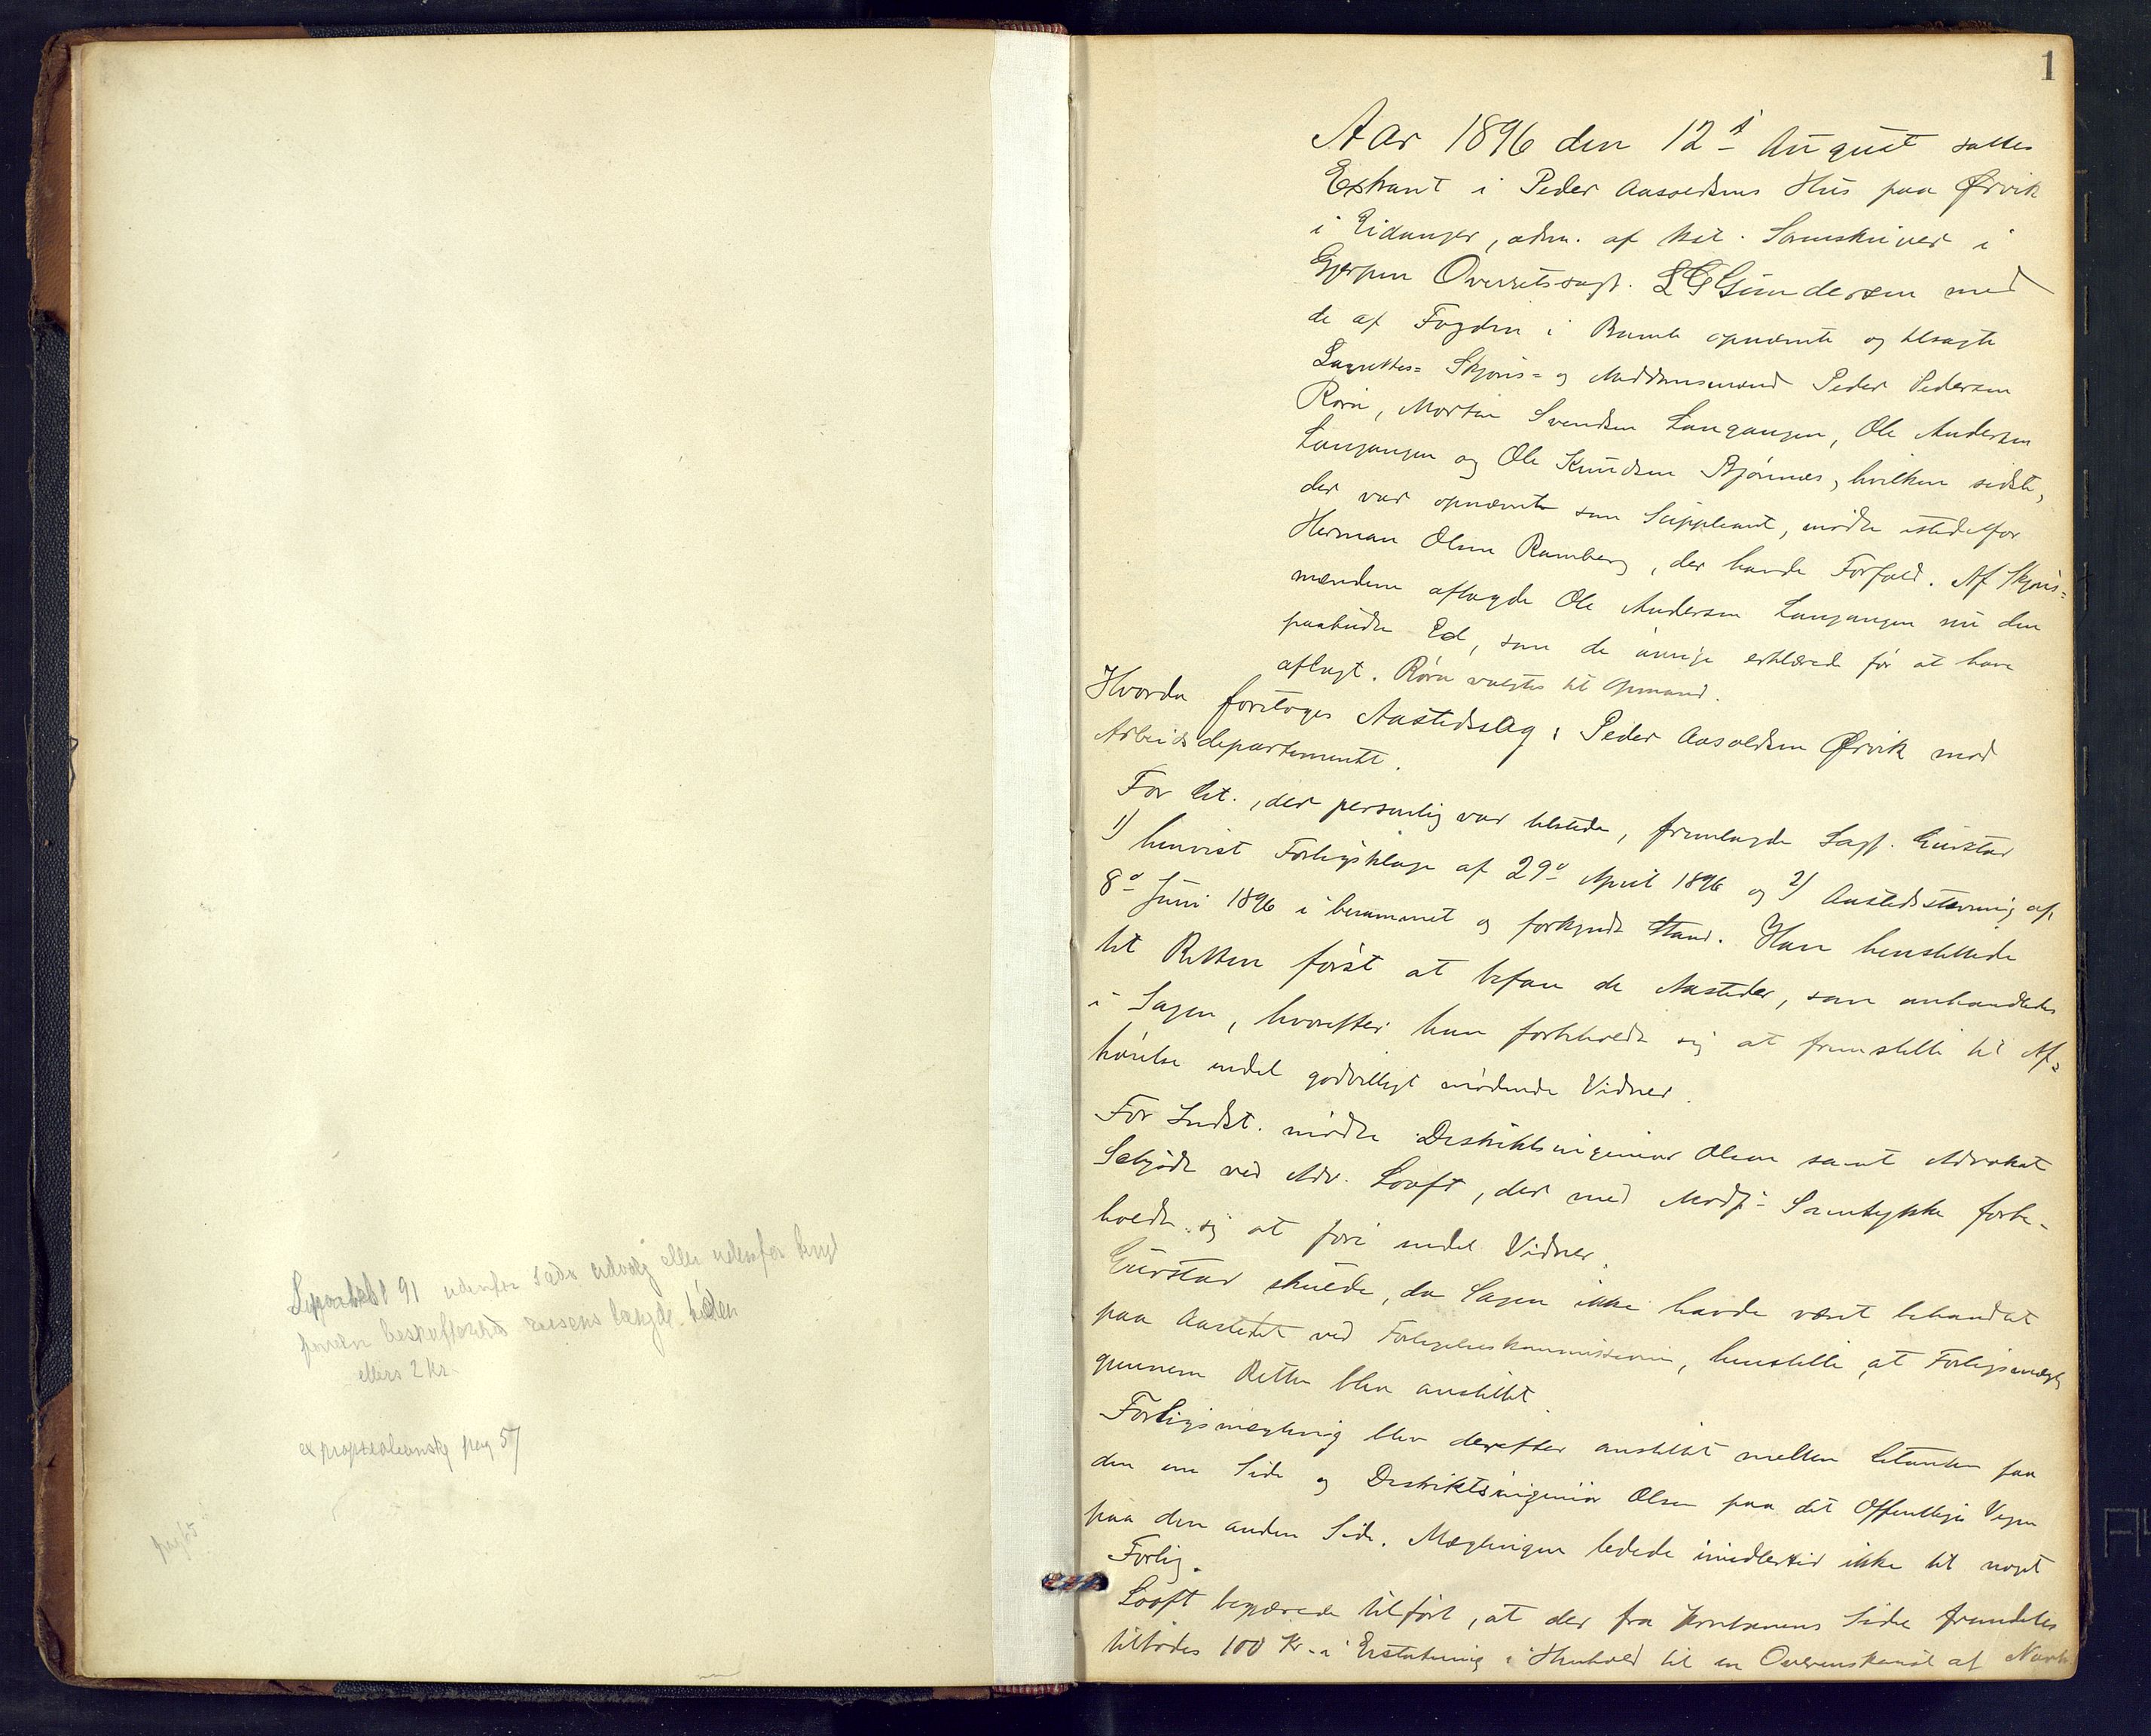 91 udenfor eller udenfor
reisens længde
ellers 2 kr.
pag 57
pag 65
1
Aar 1896 den 12te August sattes
Extraret i Peder Aasoldsens Hus paa Ørvik
i Eidanger, adm. af kst. Sorenskriver i
Gjerpen Overretssagf. LC Gundersen med
de af Fogden i Bamle opnævnte og tilsagte
Lagrettes- Skjøns- og Meddomsmænd Peder Pedersen
Røra, Morten Svendsen Langangen, Ole Andersen
Langangen og Ole Knudsen Bjønnes, hvilken sidste,
der var opnævnt som Suppleant, mødte istedetfor
Herman Olsen Ramberg, der havde Forfald. Af Skjøns-
mændene aflagde Ole Andersen Langangen nu den
paabudte Ed, som de øvrige erklærede før at have
aflagt. Røra valgtes til Formand.
Hvorda foretoges Aastedssag: Peder Aasoldsen Ørvik mod
Arbeidsdepartementet.
For Cit., der personlig var tilstede, fremlagde Sagf.
1) henvist Forligsklage af 29de April 1896 og 2) Aastedsstævning af
8de Juni 1896 i berammet og forkyndt Stand. Han henstillede
til Retten først at befare de Aasteder, som omhandledes
i Sagen, hvorefter han forbeholdt sig at fremstille til Af-
hørelse endel godvilligt mødende Vidner.
For Indst. mødte Distriktsingeniør Olsen samt Advokat
ved Adv. Looft, der med Modp. Samtykke forbe-
holdt sig at føre endel Vidner.
skulde, da Sagen ikke havde været behandlet
paa Aastedet ved Forligelseskommissionen, henstille, at Forligsmægling
gjennem Retten blev anstillet.
Forligsmægling blev derefter anstillet mellem Citanten paa
den ene Side og Distriktsingeniør Olsen paa det Offentliges Vegne
paa den anden Side. Mæglingen ledede imidlertid ikke til noget
Forlig.
Looft begjærede tilført, at der fra Side fremdeles
tilbødes 100 Kr. i Erstatning i Henhold til en Overenskomst af